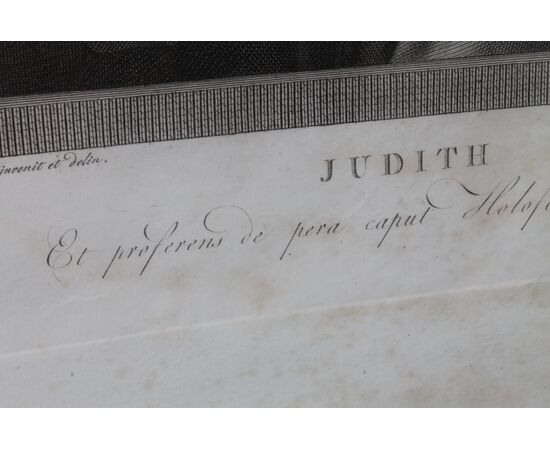 invenit et delin.
JUDITH
Et proferens de pera caput Holofe